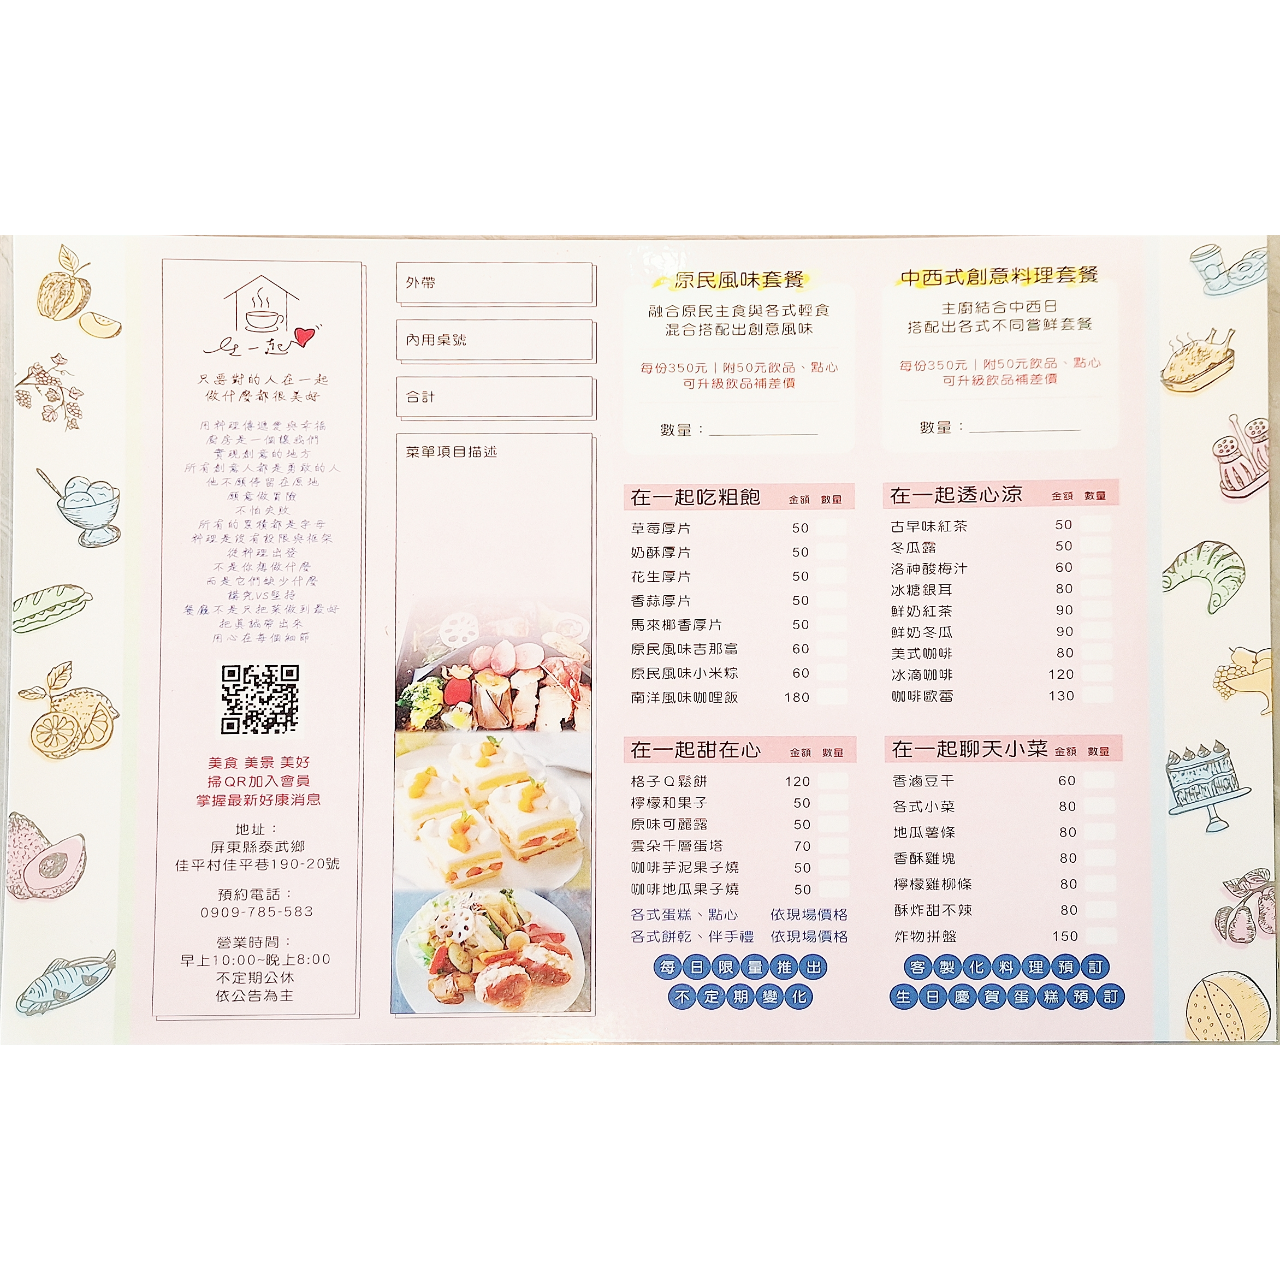 在一起
只要對的人在一起
做什麼都很美好
用料理傳遞愛與幸福
廚房是一個讓我們
實現創意的地方
所有創意人都是勇敢的人
他不願停留在原地
願意做冒險
不怕失敗
所有的累積都是字母
料理是沒有設限與框架
從料理出發
不是你想做什麼
而是它們缺少什麼
講究VS堅持
餐廳不是只把菜做到最好
把真誠帶出來
用心在每個細節
美食 美景 美好
掃QR加入會員
掌握最新好康消息
地址：
屏東縣泰武鄉
佳平村佳平巷190-20號
預約電話：
0909-785-583
營業時間：
早上10:00~晚上8:00
不定期公休
依公告為主
外帶
內用桌號
合計
菜單項目描述
原民風味套餐
融合原民主食與各式輕食
混合搭配出創意風味
每份350元｜附50元飲品、點心
可升級飲品補差價
數量：
中西式創意料理套餐
主廚結合中西日
搭配出各式不同嘗鮮套餐
每份350元｜附50元飲品、點心
可升級飲品補差價
數量：
在一起吃粗飽 金額 數量
草莓厚片 50
奶酥厚片 50
花生厚片 50
香蒜厚片 50
馬來椰香厚片 50
原民風味吉那富 60
原民風味小米粽 60
南洋風味咖哩飯 180
在一起透心涼 金額 數量
古早味紅茶 50
冬瓜露 50
洛神酸梅汁 60
冰糖銀耳 80
鮮奶紅茶 90
鮮奶冬瓜 90
美式咖啡 80
冰滴咖啡 120
咖啡歐蕾 130
在一起甜在心 金額 數量
格子Q鬆餅 120
檸檬和果子 50
原味可麗露 50
雲朵千層蛋塔 70
咖啡芋泥果子燒 50
咖啡地瓜果子燒 50
各式蛋糕、點心 依現場價格
各式餅乾、伴手禮 依現場價格
每日限量推出
不定期變化
在一起聊天小菜 金額 數量
香滷豆干 60
各式小菜 80
地瓜薯條 80
香酥雞塊 80
檸檬雞柳條 80
酥炸甜不辣 80
炸物拼盤 150
客製化料理預訂
生日慶賀蛋糕預訂